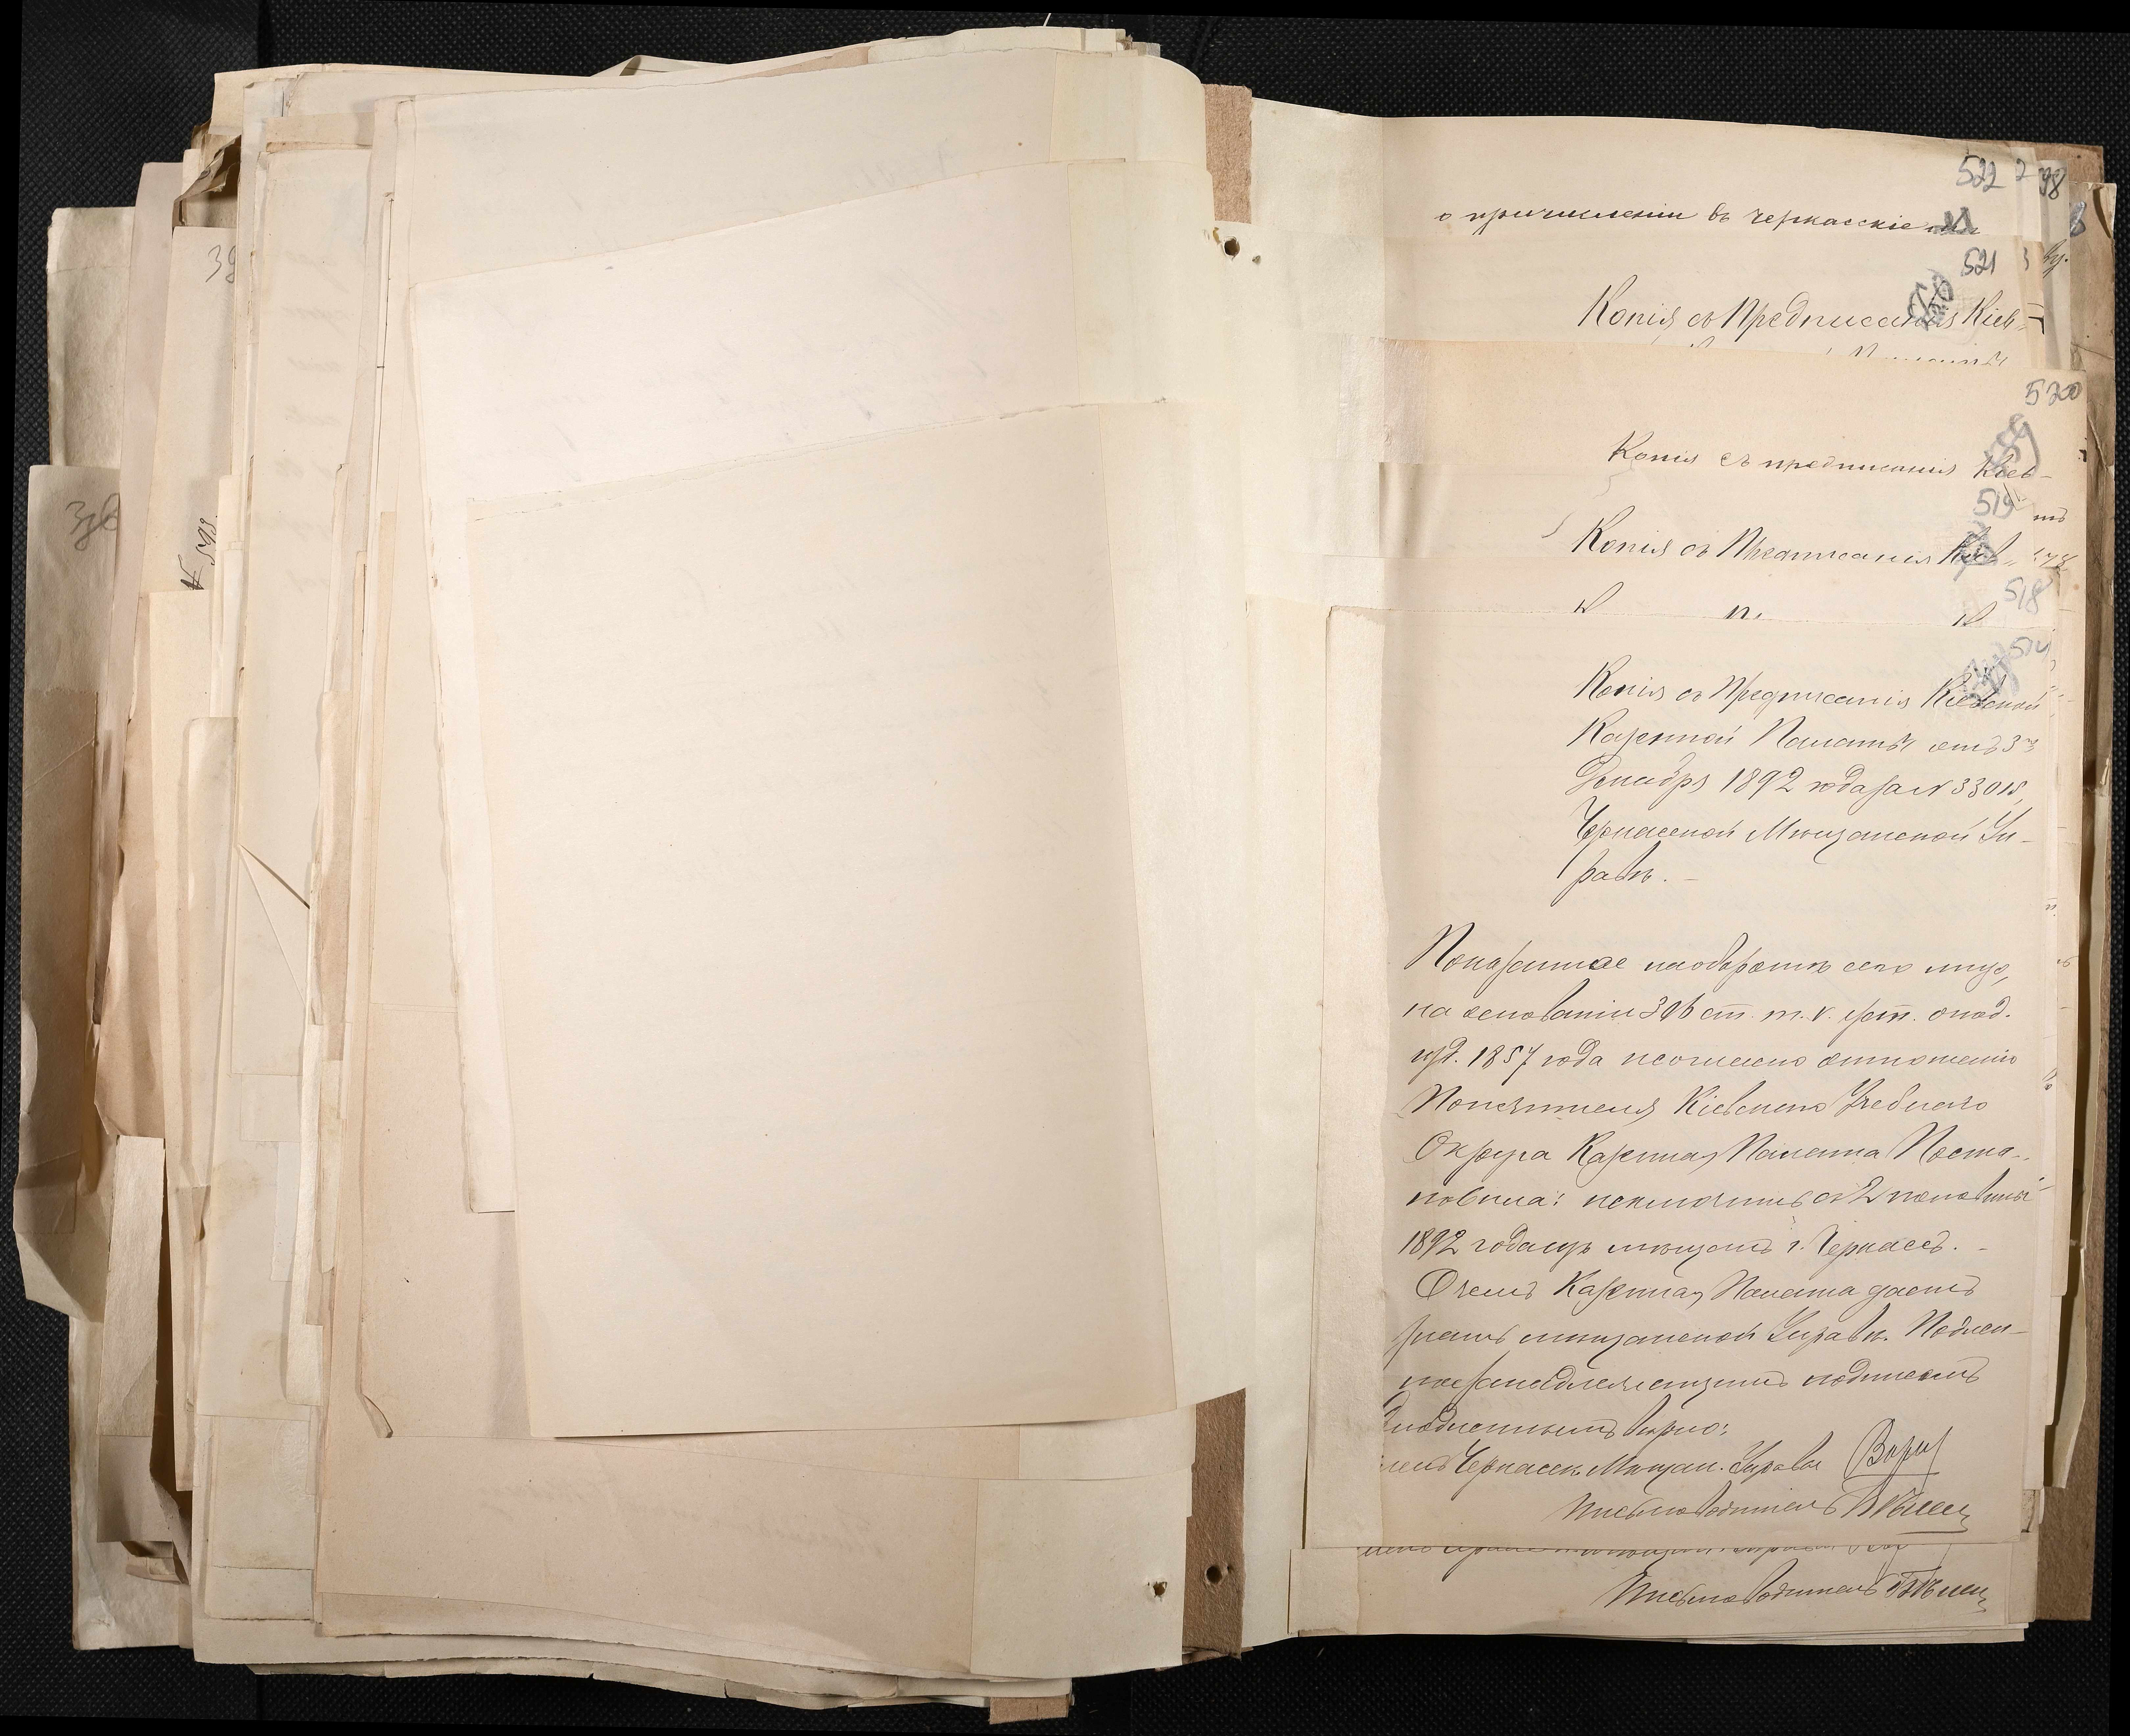 522 2 98
о причисленіи въ черкасскіе
521 3
Копія съ Предписанія Кіев-
520
Копія съ предписанія Кіев-
519
Копія съ Предписанія Кіев-
518
517
Копія съ Предписанія Кіевской
Казенной Палаты отъ 3го
Декабря 1892 года за N 33015,
Черкасской Мѣщанской Уп-
равѣ. –
Показанное на оборотѣ сего лицо,
на основаніи 306 ст. т. V. уст. о под.
изд. 1857 года и согласно отношенію
Попечителя Кіевскаго Учебнаго
Округа Казенная Палата Поста-
новила: исключить съ 2 половины
1892 года изъ мѣщанъ г. Черкассъ. –
О чемъ Казенная Палата даетъ
знать мѣщанской Управѣ. Подлин-
ное за надлежащимъ подписомъ
подлиннымъ вѣрно:
Черкасск. Мѣщан. Управы
Письмоводитель
Письмоводитель
39
38
N 598.